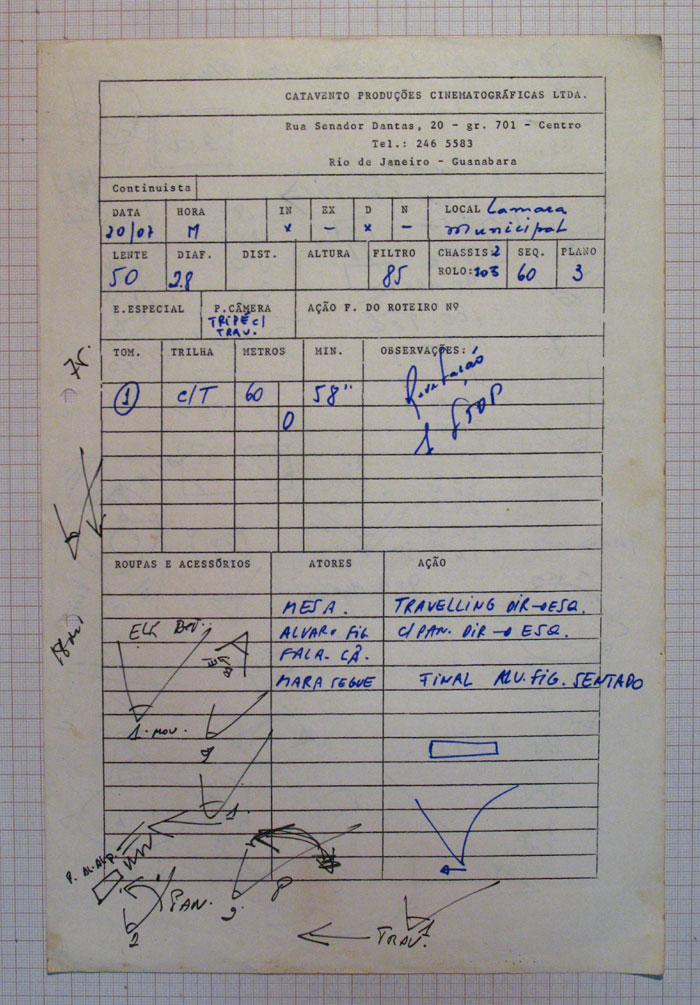 CATAVENTO PRODUÇÕES CINEMATOGRÁFICAS LTDA.
Rua Senador Dantas, 20 - gr. 701 - Centro
Tel.: 246 5583
Rio de Janeiro - Guanabara
Continuista
DATA HORA IN EX D N LOCAL Camara
20/07 M x - x - Municipal
LENTE DIAF. DIST. ALTURA FILTRO CHASSIS: 2 SEQ. PLANO
50 2.8 85 ROLO: 103 60 3
E.ESPECIAL P.CÂMERA AÇÃO F. DO ROTEIRO Nº
TRIPÉ C/
TRAV.
TOM. TRILHA METROS MIN. OBSERVAÇÕES:
1 C/T 60 58"
0 1 STOP
ROUPAS E ACESSÓRIOS ATORES AÇÃO
MESA. TRAVELLING DIR→ESQ.
ALVARO FIG C/PAN. DIR→ESQ.
FALA. CÂ.
MARA SEGUE FINAL ALV. FIG. SENTADO
1. MOV.
1.
PAN.
2
TRAV. 1